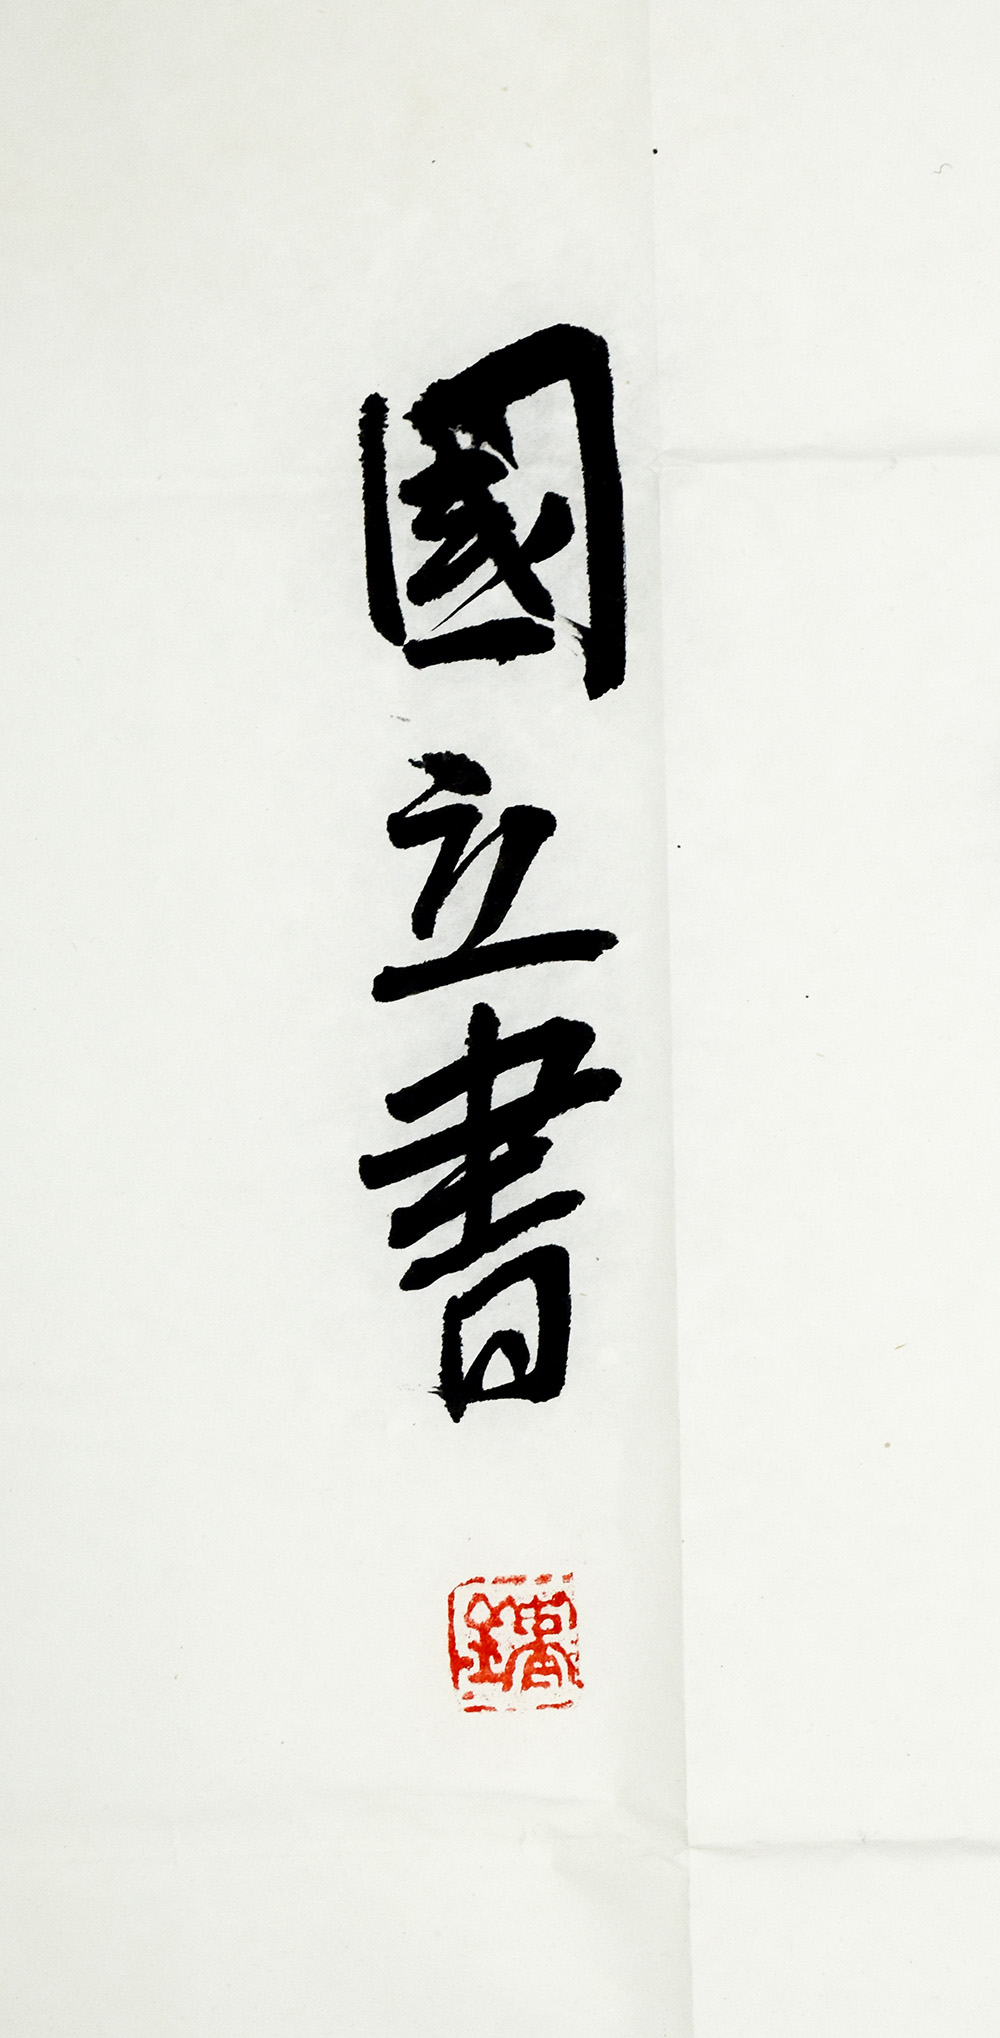 國立書